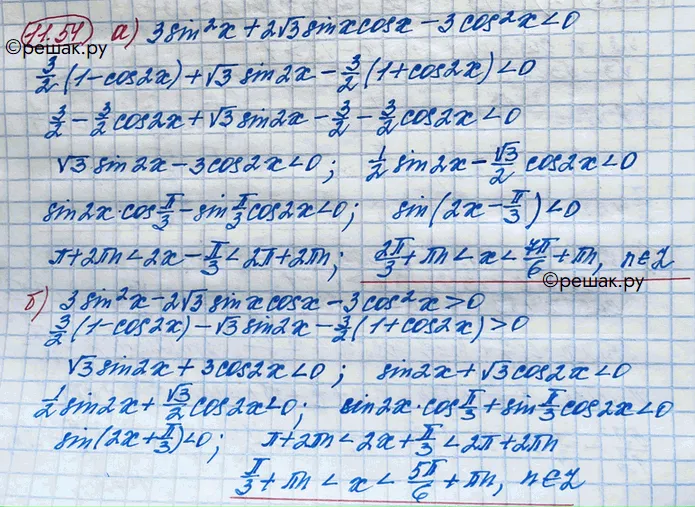 11.54 а) 3sin²x + 2√3 sinx cosx − 3cos²x < 0
©решак.ру
3/2(1−cos2x) + √3 sin2x − 3/2(1+cos2x) < 0
3/2 − 3/2 cos2x + √3 sin2x − 3/2 − 3/2 cos2x < 0
√3 sin2x − 3cos2x < 0; 1/2 sin2x − √3/2 cos2x < 0
sin2x·cos π/3 − sin π/3 cos2x < 0; sin(2x − π/3) < 0
π + 2πn < 2x − π/3 < 2π + 2πn; 2π/3 + πn < x < 7π/6 + πn, n∈Z
©решак.ру
б) 3sin²x − 2√3 sinx cosx − 3cos²x > 0
3/2(1−cos2x) − √3 sin2x − 3/2(1+cos2x) > 0
√3 sin2x + 3cos2x < 0; sin2x + √3 cos2x < 0
1/2 sin2x + √3/2 cos2x < 0; sin2x·cos π/3 + sin π/3 cos2x < 0
sin(2x + π/3) < 0; π + 2πn < 2x + π/3 < 2π + 2πn
π/3 + πn < x < 5π/6 + πn, n∈Z